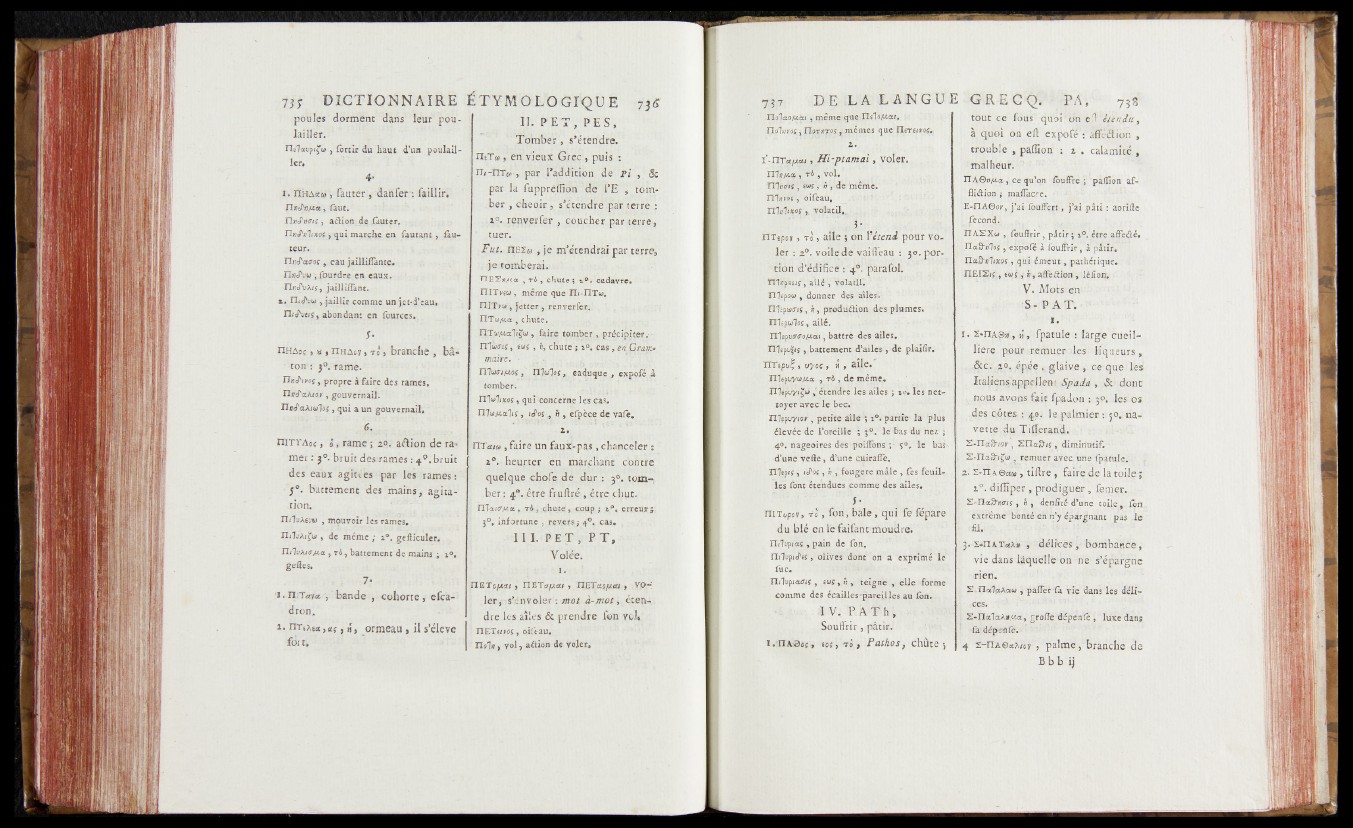 735 DICTIONNAIRE ÉTYMOLOGIQUE 736
poules dorment dans leur pou-
lailler.
ler.
4.
1. ΠΗΔαω, ſauter, danſer : ſaillir.
Πηδημα, ſaut.
Πηδησις, action de ſauter.
Πηδητικος, qui marche en ſautant, ſau-
teur.
eau jailliſſante.
Πηδυω, ſourdre en eaux.
Πηδυλις, jailliſſant.
2. Πιδυω, jaillir comme un jet-d'eau.
abondant en ſources.
5.
ΠΗΔος, ου, ΠΗΔον, το, branche, bâ-
ton : 3°. rame.
Πηδινος, propre à faire des rames.
Πηδαλιον, gouvernail.
Πηδαλιωτος, qui a un gouvernail.
6.
ΠΙΤΥΛος, ὁ, rame ; 2°. action de ra-
mer : 3°. bruit des rames : 4°. bruit
des eaux agitées par les rames :
5°. battement des mains, agita-
tion.
Πιτυλευω, mouvoir les rames.
Πιτυλιζω, de même ; 2°. geſticuler.
Πιτυλισμα, τὸ, battement de mains ; 2°.
geſtes.
7.
bande, cohorte, eſca-
dron.
2. ΠΤελεα, ας, ἡ, ormeau, il s'éleve
fort.
II. PET, PES,
Tomber, s'étendre.
ΠεΤω, en vieux Grec, puis :
Πι-ΠΤω, par l'addition de Pi, &
par la ſuppreſſion de l'E, tom-
ber, cheoir, s'étendre par terre :
2°. renverſer, coucher par terre,
tuer.
Fut. ΠΕΣω, je m'étendrai par terre,
je tomberai.
ΠΕΣημα, τὸ, chute ; 2°. cadavre.
ΠΙΤνεω, même que Πι-ΠΤω.
ΠΙΤνω, jetter, renverſer.
ΠΤωμα, chute.
ΠΤωματιζω, faire tomber, précipiter.
Πτωσις, εως, ἡ, chute ; 2°. cas, en Gram-
maire.
Πτωσιμος, caduque, expoſé à
tomber.
Πτωτικος, qui concerne les cas.
Πτωματις, ιδος, ἡ, eſpèce de vaſe.
2.
ΠΤαιω, faire un faux-pas, chanceler :
2°. heurter en marchant contre
quelque choſe de dur : 3°. tom-
ber : 4°. être fruſtré, être chut.
ΠΤαισμα, τὸ, chute, coup ; 2°. erreur ;
3°. infortune, revers ; 4°. cas.
III. PET, PT,
Volée.
1.
ΠΕΤομαι, ΠΕΤαμαι, ΠΕΤαομαι, vo-
ler, s'envoler : mot à-mot, éten-
dre les aîles & prendre ſon vol.
ΠΕΤεινος, oiſeau.
vol, action de voler.
737 DE LA LANGUE GRECQ. PA, 738
Ποταομαι, même que
mêmes que Πετεινος.
2.
Ι'-ΠΤαμαι, Hi-ptamai, voler.
Πτημα, τὸ, vol.
Πτησις, εως, ἡ, de même.
Πτηνος, oiſeau.
Πτητικος, volatil.
3.
ΠΤερον, τὸ, aîle ; on l'étend pour vo-
ler : 2°. voile de vaiſſeau : 3°. por-
tion d'édifice : 4°. paraſol.
aîlé, volatil.
Πτεροω, donner des aîles.
Πτερωσις, ἡ, production des plumes.
Πτερωτος, aîlé.
Πτερυσσομαι, battre des aîles.
Πτερυξις, battement d'aîles, de plaiſir.
ΠΤερυξ, υγος, ἡ, aîle.
Πτερυγωμα, τὸ, de même.
Πτερυγιζω, étendre les aîles ; 2°. les net-
toyer avec le bec.
Πτερυγιον, petite aîle ; 2°. partie la plus
élevée de l'oreille ; 3°. le bas du nez ;
4°. nageoires des poiſſons ; 5°. le bas
d'une veſte, d'une cuiraſſe.
Πτερις, ιδος, ἡ, fougere mâle, ſes feuil-
les ſont étendues comme des aîles.
5.
ΠΙΤυρον, τὸ, ſon, bale, qui ſe ſépare
du blé en le faiſant moudre.
Πιτυριας, pain de ſon.
Πιτυριδες, olives dont on a exprimé le
ſuc.
Πιτυριασις, εως, ἡ, teigne, elle forme
comme des écailles pareilles au ſon.
IV. PATh,
Souffrir, pâtir.
1. ΠΑΘος, εος, τὸ, Pathos, chûte ;
tout ce ſous quoi on eſt étendu,
à quoi on eſt expoſé : affection,
trouble, paſſion : 2. calamité,
malheur.
ΠΑΘημα, ce qu'on ſouffre ; paſſion af-
fliction ; maſſacre.
Ε-ΠΑΘον, j'ai ſouffert, j'ai pâti : aoriſte
ſecond.
ΠΑΣΧω, ſouffrir, pâtir ; 2°. être affecté.
Παθητος, expoſé à ſouffrir, à pâtir.
Παθητικος, qui émeut, pathétique.
ΠΕΙΣις, εως, ἡ, affection, léſion.
V. Mots en
S-PAT.
1.
1. Σ-ΠΑΘη, ἡ, ſpatule : large cueil-
liere pour remuer les liqueurs,
&c. 2°. épée, glaive, ce que les
Italiens appellent Spada, & dont
nous avons fait ſpadon : 3°. les os
des côtes : 4°. le palmier : 5°. na-
vette du Tiſſerand.
Σ-Παθιον, ΣΠαθις, diminutif.
Σ-Παθιζω, remuer avec une ſpatule.
2. Σ-ΠΑΘαω, tiſtre, faire de la toile ;
2°. diſſiper, prodiguer, ſemer.
Σ-Παθησις, ἡ, denſité d'une toile, ſon
extrême bonté en n'y épargnant pas le
fil.
3. Σ-ΠΑΤαλη, délices, bombance,
vie dans laquelle on ne s'épargne
rien.
Σ-Παταλαω, paſſer ſa vie dans les déli-
ces.
Σ-Παταλημα, groſſe dépenſe, luxe dans
ſa dépenſe.
4 Σ-ΠΑΘαλιον, palme, branche de
Bbb ij